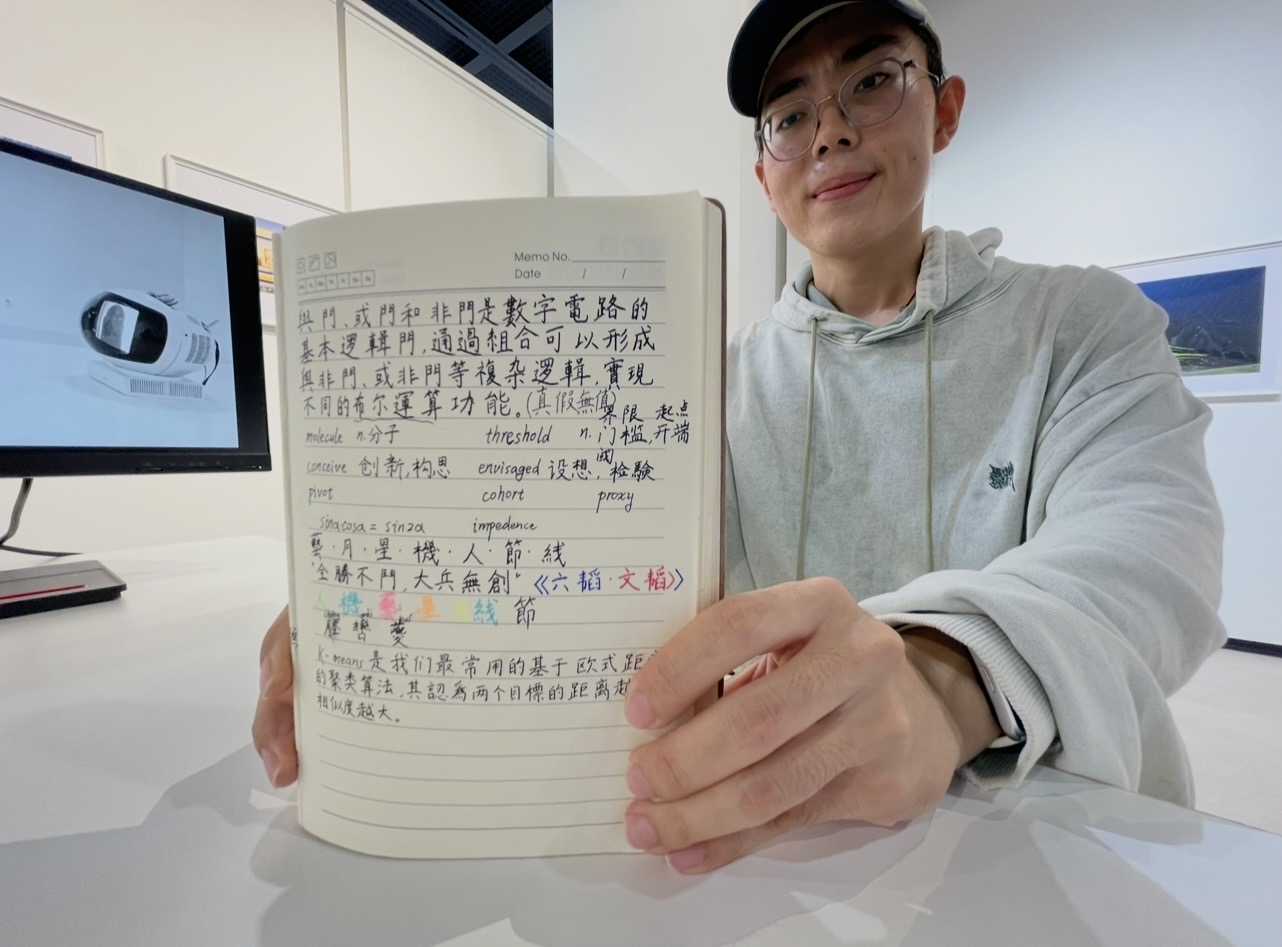 Memo No.
Date / /
與門、或門和非門是數字電路的
基本逻輯門,通過組合可以形成
與非門、或非門等複杂逻輯,實現
不同的布尔運算功能。(真假無值)
界限 起点
molecule n.分子 threshold n.门槛,开端
conceive 创新,构思 envisaged 设想,或检驗
pivot cohort proxy
sinαcosα = sin2α impedence
藝·月·星·機·人·節·线
"全勝不鬥,大兵無創"《六韬·文韬》
人 機 藝 星 月 线 節
K-means 是我们最常用的基于欧式距
的聚类算法,其認為两个目標的距离越
相似度越大。